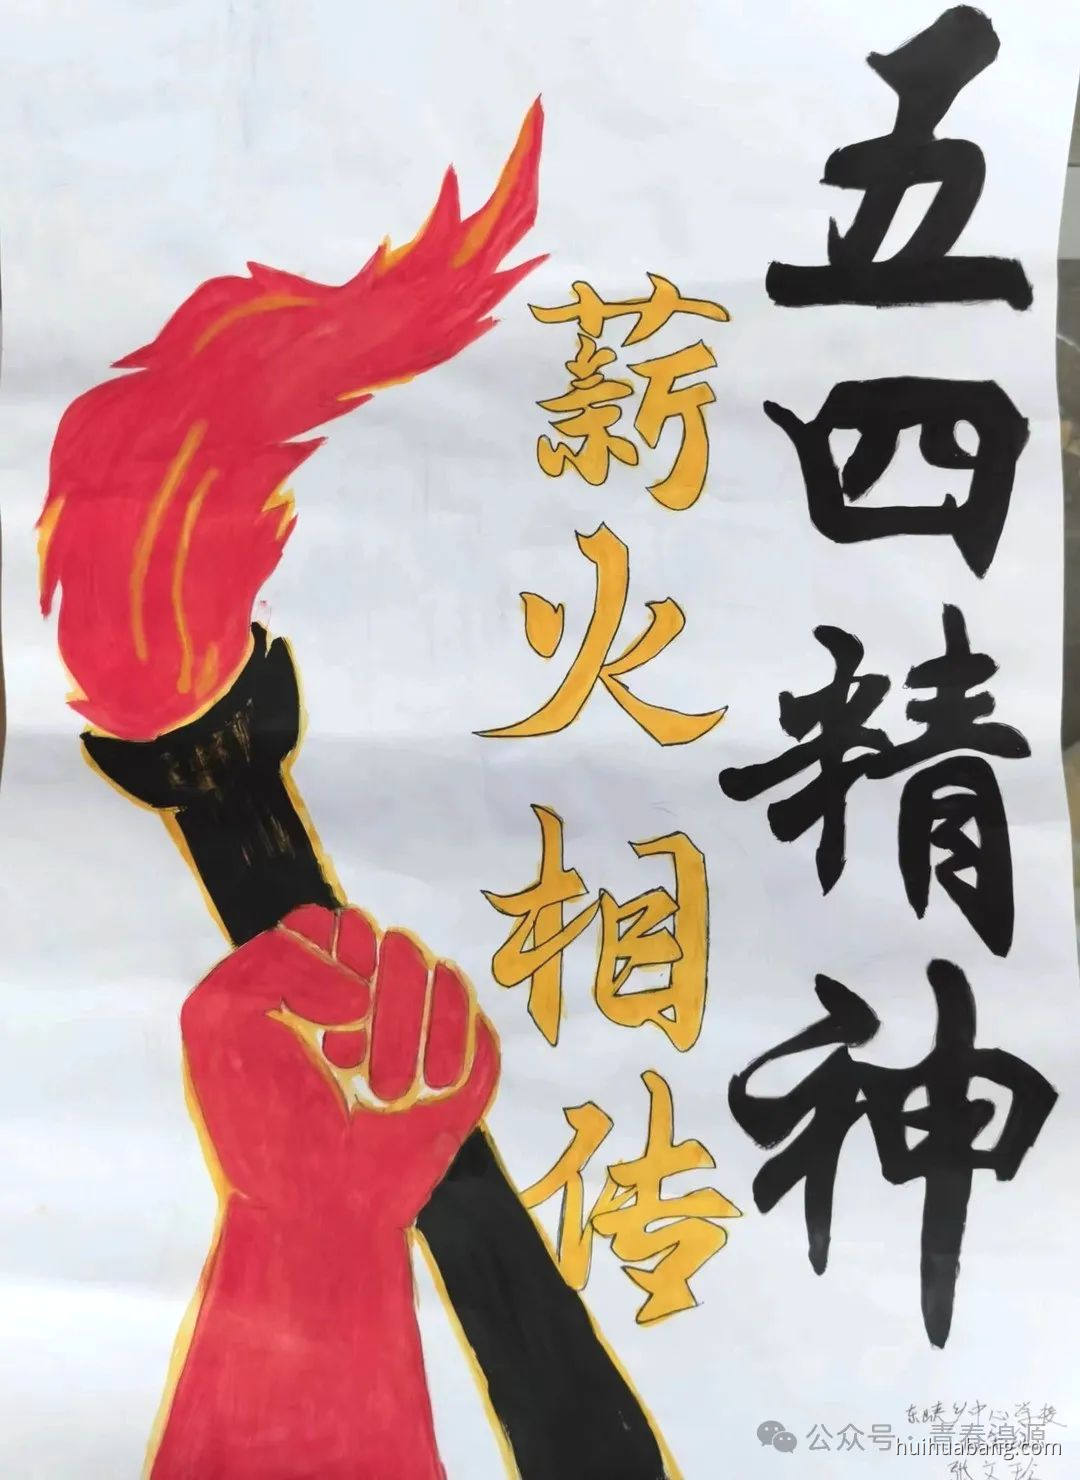 五四精神
薪火相传
东峡乡中心学校
公众号·青春湟源
huihuabang.com